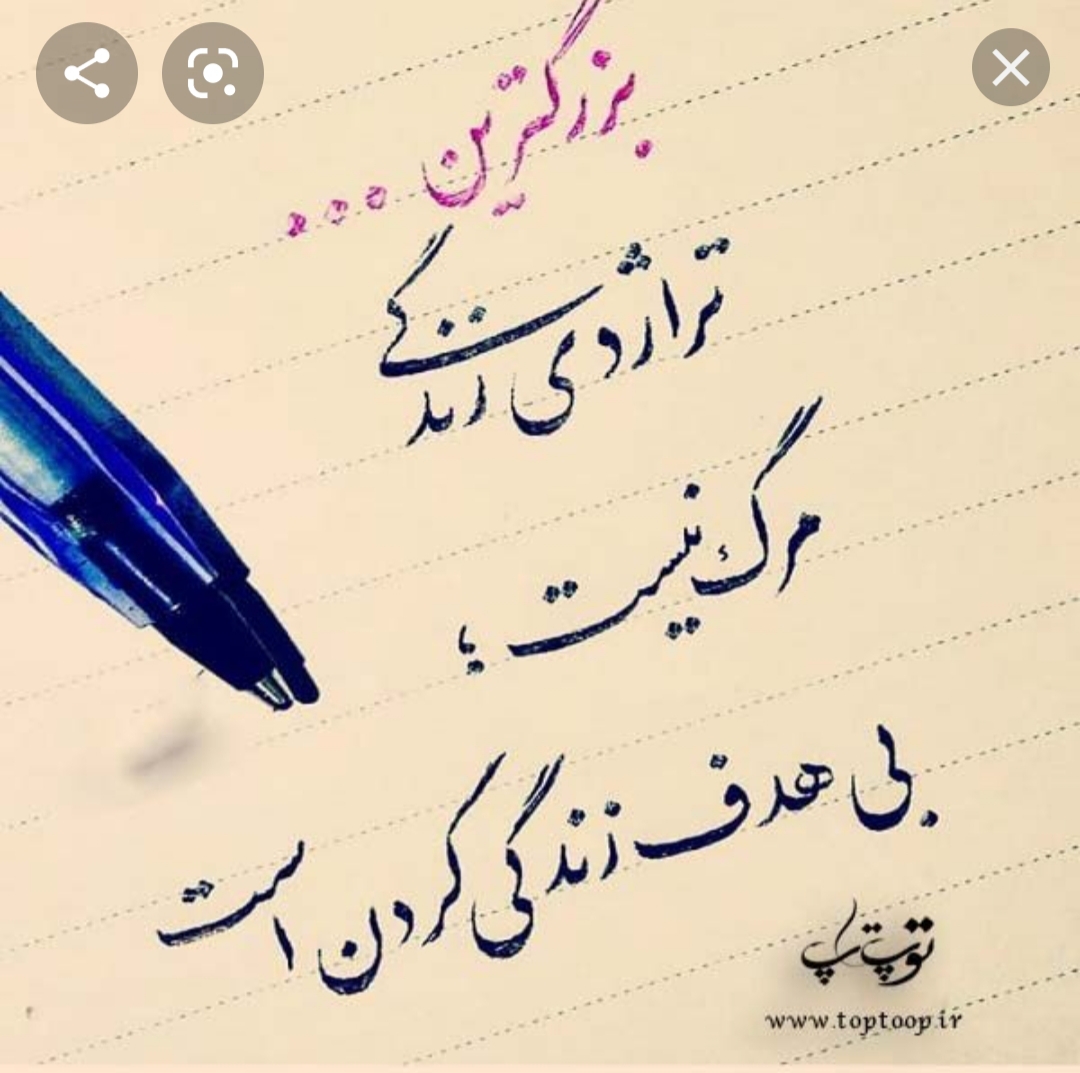 بزرگترین ...
تراژدی زندگے
مرگ نیست ؛
بی هدف زندگی کردن است
توپ تاپ
www.toptoop.ir